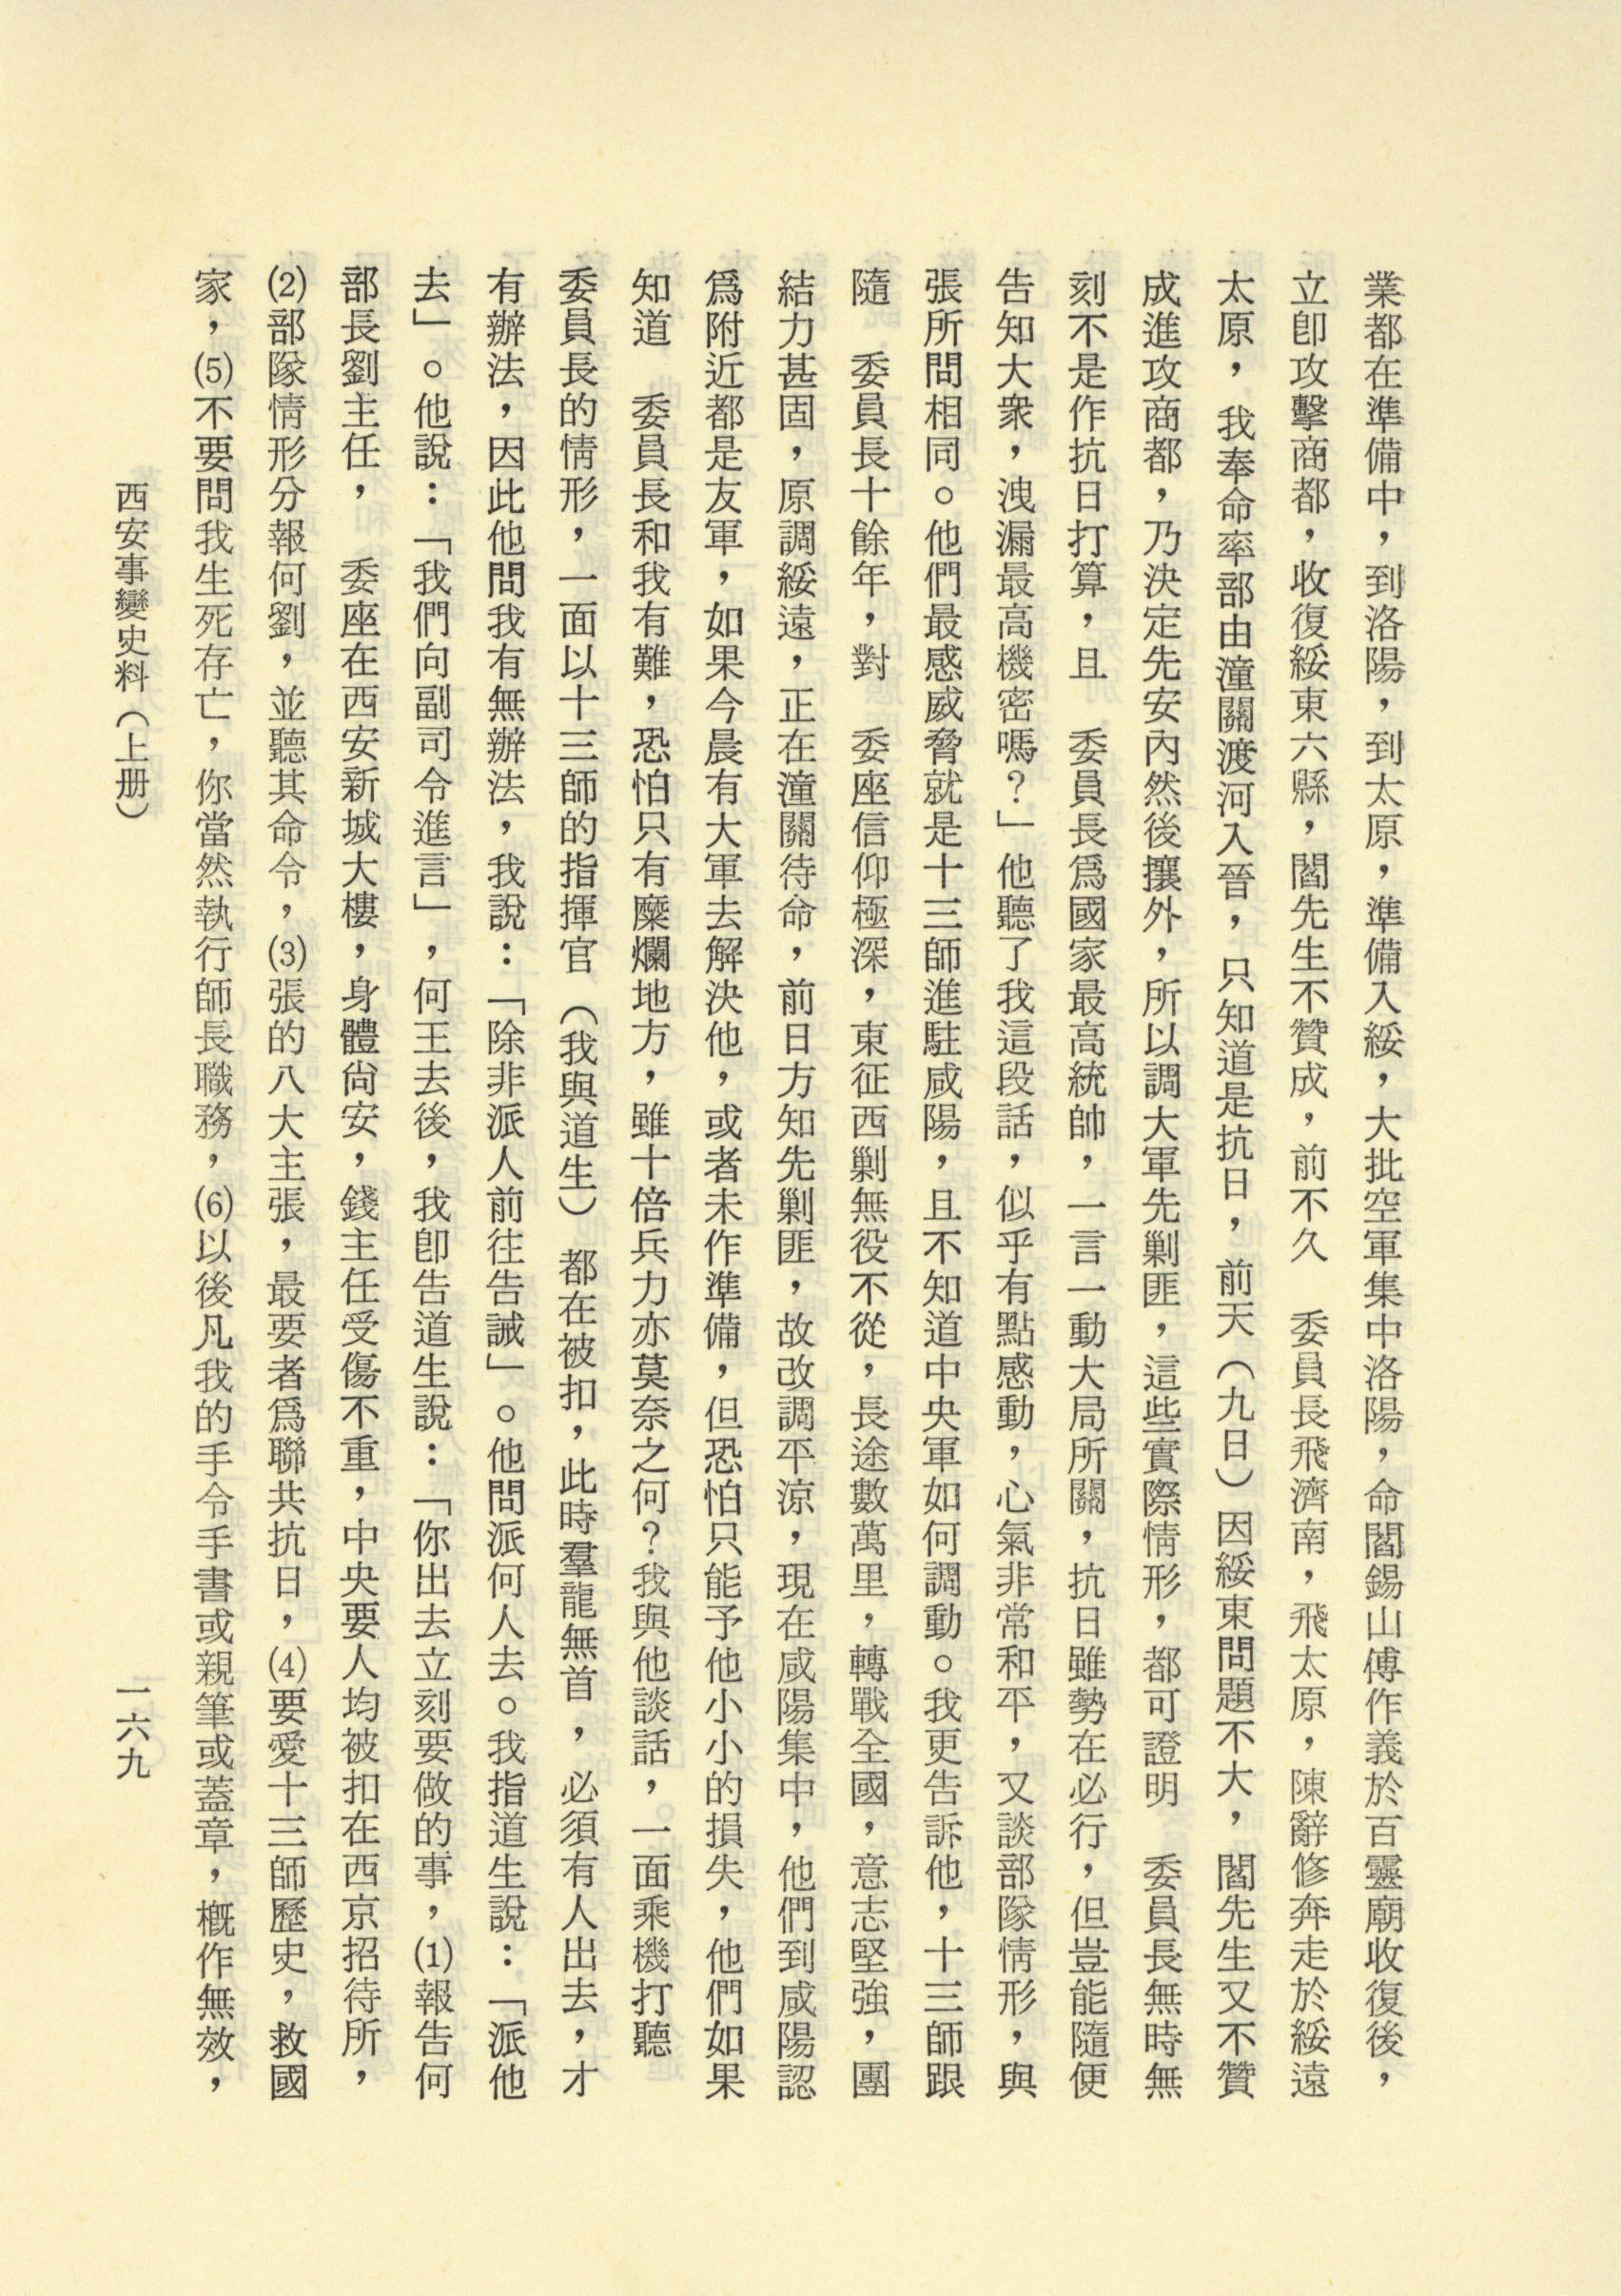 業都在準備中，到洛陽，到太原，準備入綏，大批空軍集中洛陽，命閻錫山傅作義於百靈廟收復後，
立卽攻擊商都，收復綏東六縣，閻先生不贊成，前不久　委員長飛濟南，飛太原，陳辭修奔走於綏遠
太原，我奉命率部由潼關渡河入晉，只知道是抗日，前天（九日）因綏東問題不大，閻先生又不贊
成進攻商都，乃決定先安內然後攘外，所以調大軍先剿匪，這些實際情形，都可證明　委員長無時無
刻不是作抗日打算，且　委員長爲國家最高統帥，一言一動大局所關，抗日雖勢在必行，但豈能隨便
告知大衆，洩漏最高機密嗎？」他聽了我這段話，似乎有點感動，心氣非常和平，又談部隊情形，與
張所問相同。他們最感威脅就是十三師進駐咸陽，且不知道中央軍如何調動。我更告訴他，十三師跟
隨　委員長十餘年，對　委座信仰極深，東征西剿無役不從，長途數萬里，轉戰全國，意志堅強，團
結力甚固，原調綏遠，正在潼關待命，前日方知先剿匪，故改調平涼，現在咸陽集中，他們到咸陽認
爲附近都是友軍，如果今晨有大軍去解決他，或者未作準備，但恐怕只能予他小小的損失，他們如果
知道　委員長和我有難，恐怕只有糜爛地方，雖十倍兵力亦莫奈之何？我與他談話，一面乘機打聽
委員長的情形，一面以十三師的指揮官（我與道生）都在被扣，此時羣龍無首，必須有人出去，才
有辦法，因此他問我有無辦法，我說：「除非派人前往告誡」。他問派何人去。我指道生說：「派他
去」。他說：「我們向副司令進言」，何王去後，我卽告道生說：「你出去立刻要做的事，⑴報告何
部長劉主任，　委座在西安新城大樓，身體尙安，錢主任受傷不重，中央要人均被扣在西京招待所，
⑵部隊情形分報何劉，並聽其命令，⑶張的八大主張，最要者爲聯共抗日，⑷要愛十三師歷史，救國
家，⑸不要問我生死存亡，你當然執行師長職務，⑹以後凡我的手令手書或親筆或蓋章，概作無效，
西安事變史料（上册）
一六九